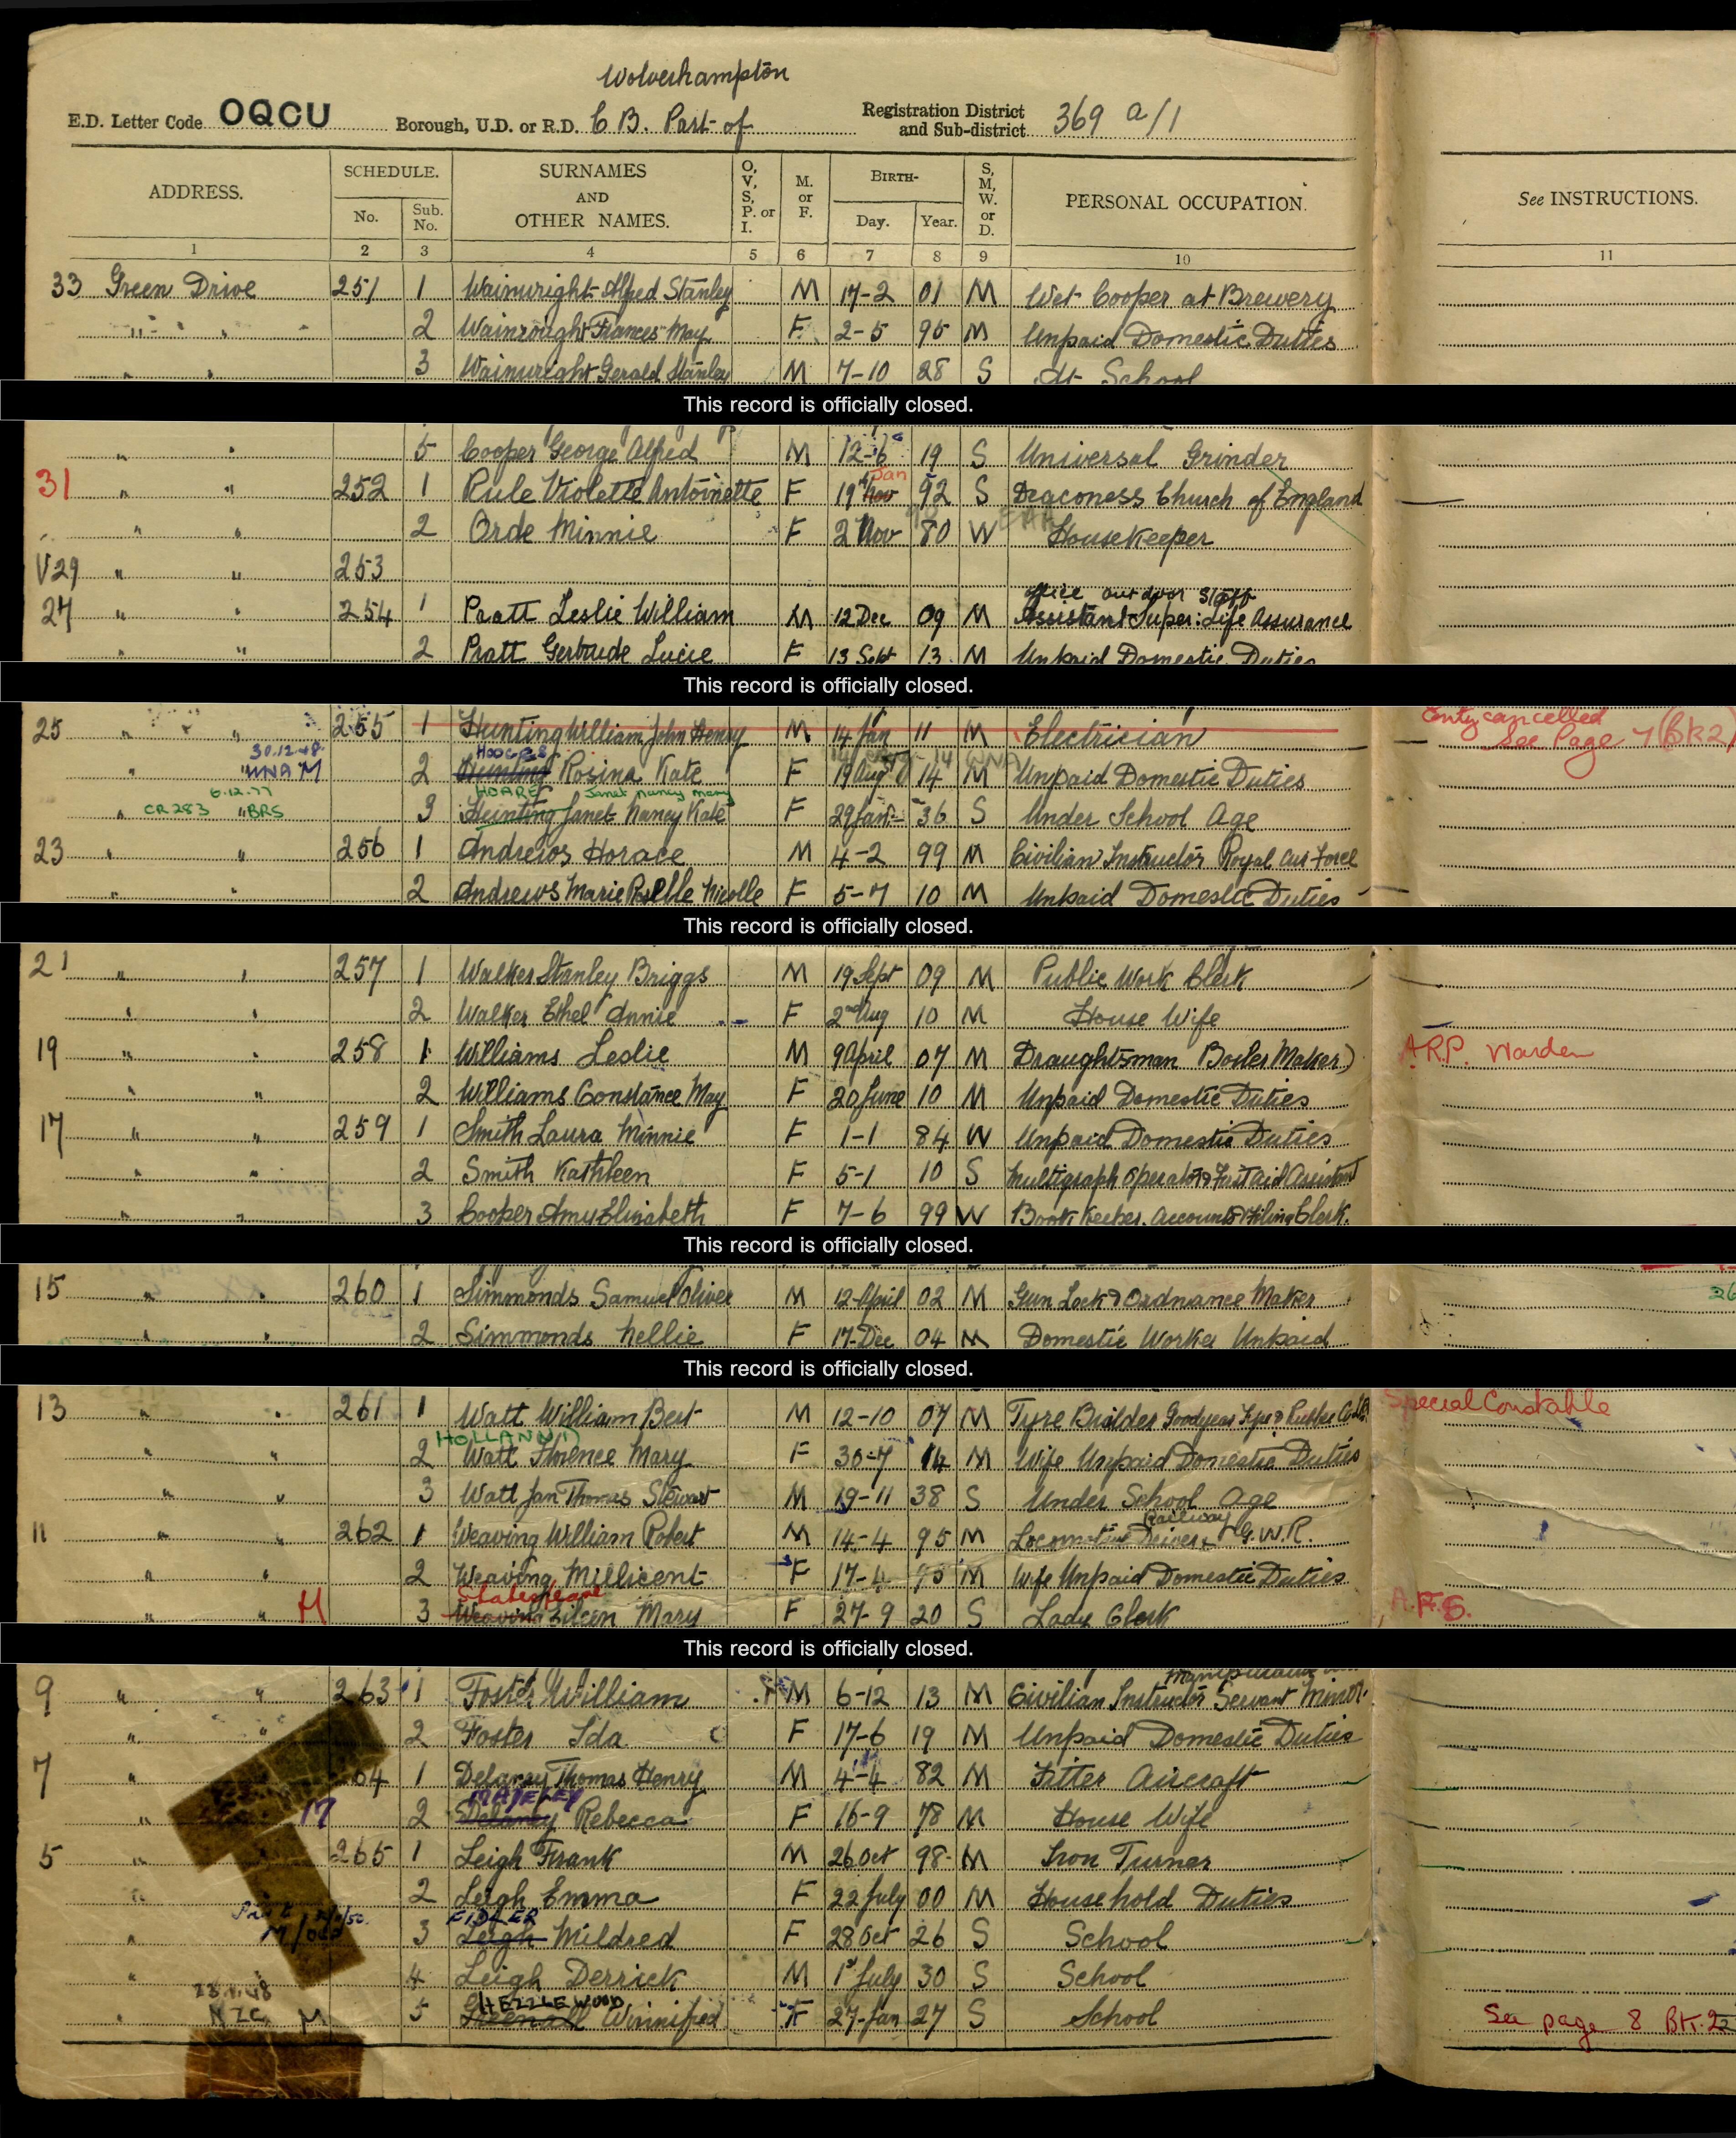 Wolverhampton
E.D. Letter Code OQCU Borough, U.D. or R.D. C.B. Part of Registration District and Sub-district 369 a/1
ADDRESS. SCHEDULE. No. Sub. No. SURNAMES AND OTHER NAMES. O, V, S, P. or I. M. or F. BIRTH- Day. Year. S, M, W. or D. PERSONAL OCCUPATION. See INSTRUCTIONS.
1 2 3 4 5 6 7 8 9 10 11
33 Green Drive 251 1 Wainwright Alfred Stanley M 17-2 01 M Wet Cooper at Brewery
" " 2 Wainwright Frances May F 2-5 95 M Unpaid Domestic Duties
" " 3 Wainwright Gerald Stanley M 7-10 28 S At School
This record is officially closed.
" " 5 Cooper George Alfred M 12-6 19 S Universal Grinder
Jan
31 " " 252 1 Rule Violette Antoinette F 19 Nov 92 S Deaconess Church of England
" " 2 Orde Minnie F 2 Nov 80 W HouseKeeper
V29 " " 253
office outdoor staff
27 " " 254 1 Pratt Leslie William M 12 Dec 09 M Assistant Super: Life Assurance
" " 2 Pratt Gertrude Lucie F 13 Sept 13 M Unpaid Domestic Duties
This record is officially closed.
25 " " 255 1 Hunting William John Henry M 14 Jan 11 M Electrician Entry cancelled
See Page 7 (BK2)
30.12.48
" WNA M 2 Hunting Rosina Kate F 19 Aug 14 M Unpaid Domestic Duties
6.12.77 HOARE Janet Nancy Mary
" CR283 " BRS 3 Hunting Janet Nancy Kate F 29 Jan 36 S Under School Age
23 " " 256 1 Andrews Horace M 4-2 99 M Civilian Instructor Royal Air Force
" " 2 Andrews Marie Nicolle F 5-7 10 M Unpaid Domestic Duties
This record is officially closed.
21 " " 257 1 Walker Stanley Briggs M 19 Sept 09 M Public Work Clerk
" " 2 Walker Ethel Annie F 2nd Aug 10 M House Wife
19 " " 258 1 Williams Leslie M 9 April 07 M Draughtsman Boiler Maker) A.R.P. Warden
" " 2 Williams Constance May F 20 June 10 M Unpaid Domestic Duties
17 " " 259 1 Smith Laura Minnie F 1-1 84 W Unpaid Domestic Duties
" " 2 Smith Kathleen F 5-1 10 S Multigraph Operator & First Aid Assistant
" " 3 Cooper Amy Elizabeth F 7-6 99 W Book Keeper. Accounts & Filing Clerk.
This record is officially closed.
15 " " 260 1 Simmonds Samuel Oliver M 12 April 02 M Gun Lock & Ordnance Maker 26
" " 2 Simmonds Nellie F 17-Dec 04 M Domestic Worker Unpaid
This record is officially closed.
13 " " 261 1 Watt William Bert M 12-10 07 M Tyre Builder Goodyear Tyre & Rubber Co Ltd Special Constable
HOLLAND
" " 2 Watt Florence Mary F 30-7 14 M Wife Unpaid Domestic Duties
" " 3 Watt Ian Thomas Stewart M 19-11 38 S Under School Age
Railway
11 " " 262 1 Weaving William Robert M 14-4 95 M Locomotive Driver G.W.R.
" " 2 Weaving Millicent F 17-4 95 M Wife Unpaid Domestic Duties
Shakespeare
" " M 3 Weaving Eileen Mary F 27-9 20 S Lady Clerk A.F.S.
This record is officially closed.
9 " " 263 1 Foster William M 6-12 13 M Civilian Instructor Servant Minor
" " 2 Foster Ida F 17-6 19 M Unpaid Domestic Duties
7 " 264 1 Delaney Thomas Henry M 4-4 82 M Fitter Aircraft
" 17 2 Delaney Rebecca F 16-9 78 M House Wife
5 " 265 1 Leigh Frank M 26 Oct 98 M Iron Turner
" 2 Leigh Emma F 22 July 00 M Household Duties
FIDLER
" 3 Leigh Mildred F 28 Oct 26 S School
" 4 Leigh Derrick M 1st July 30 S School
NZC M 5 Winnifred F 27-Jan 27 S School See page 8 BK.2